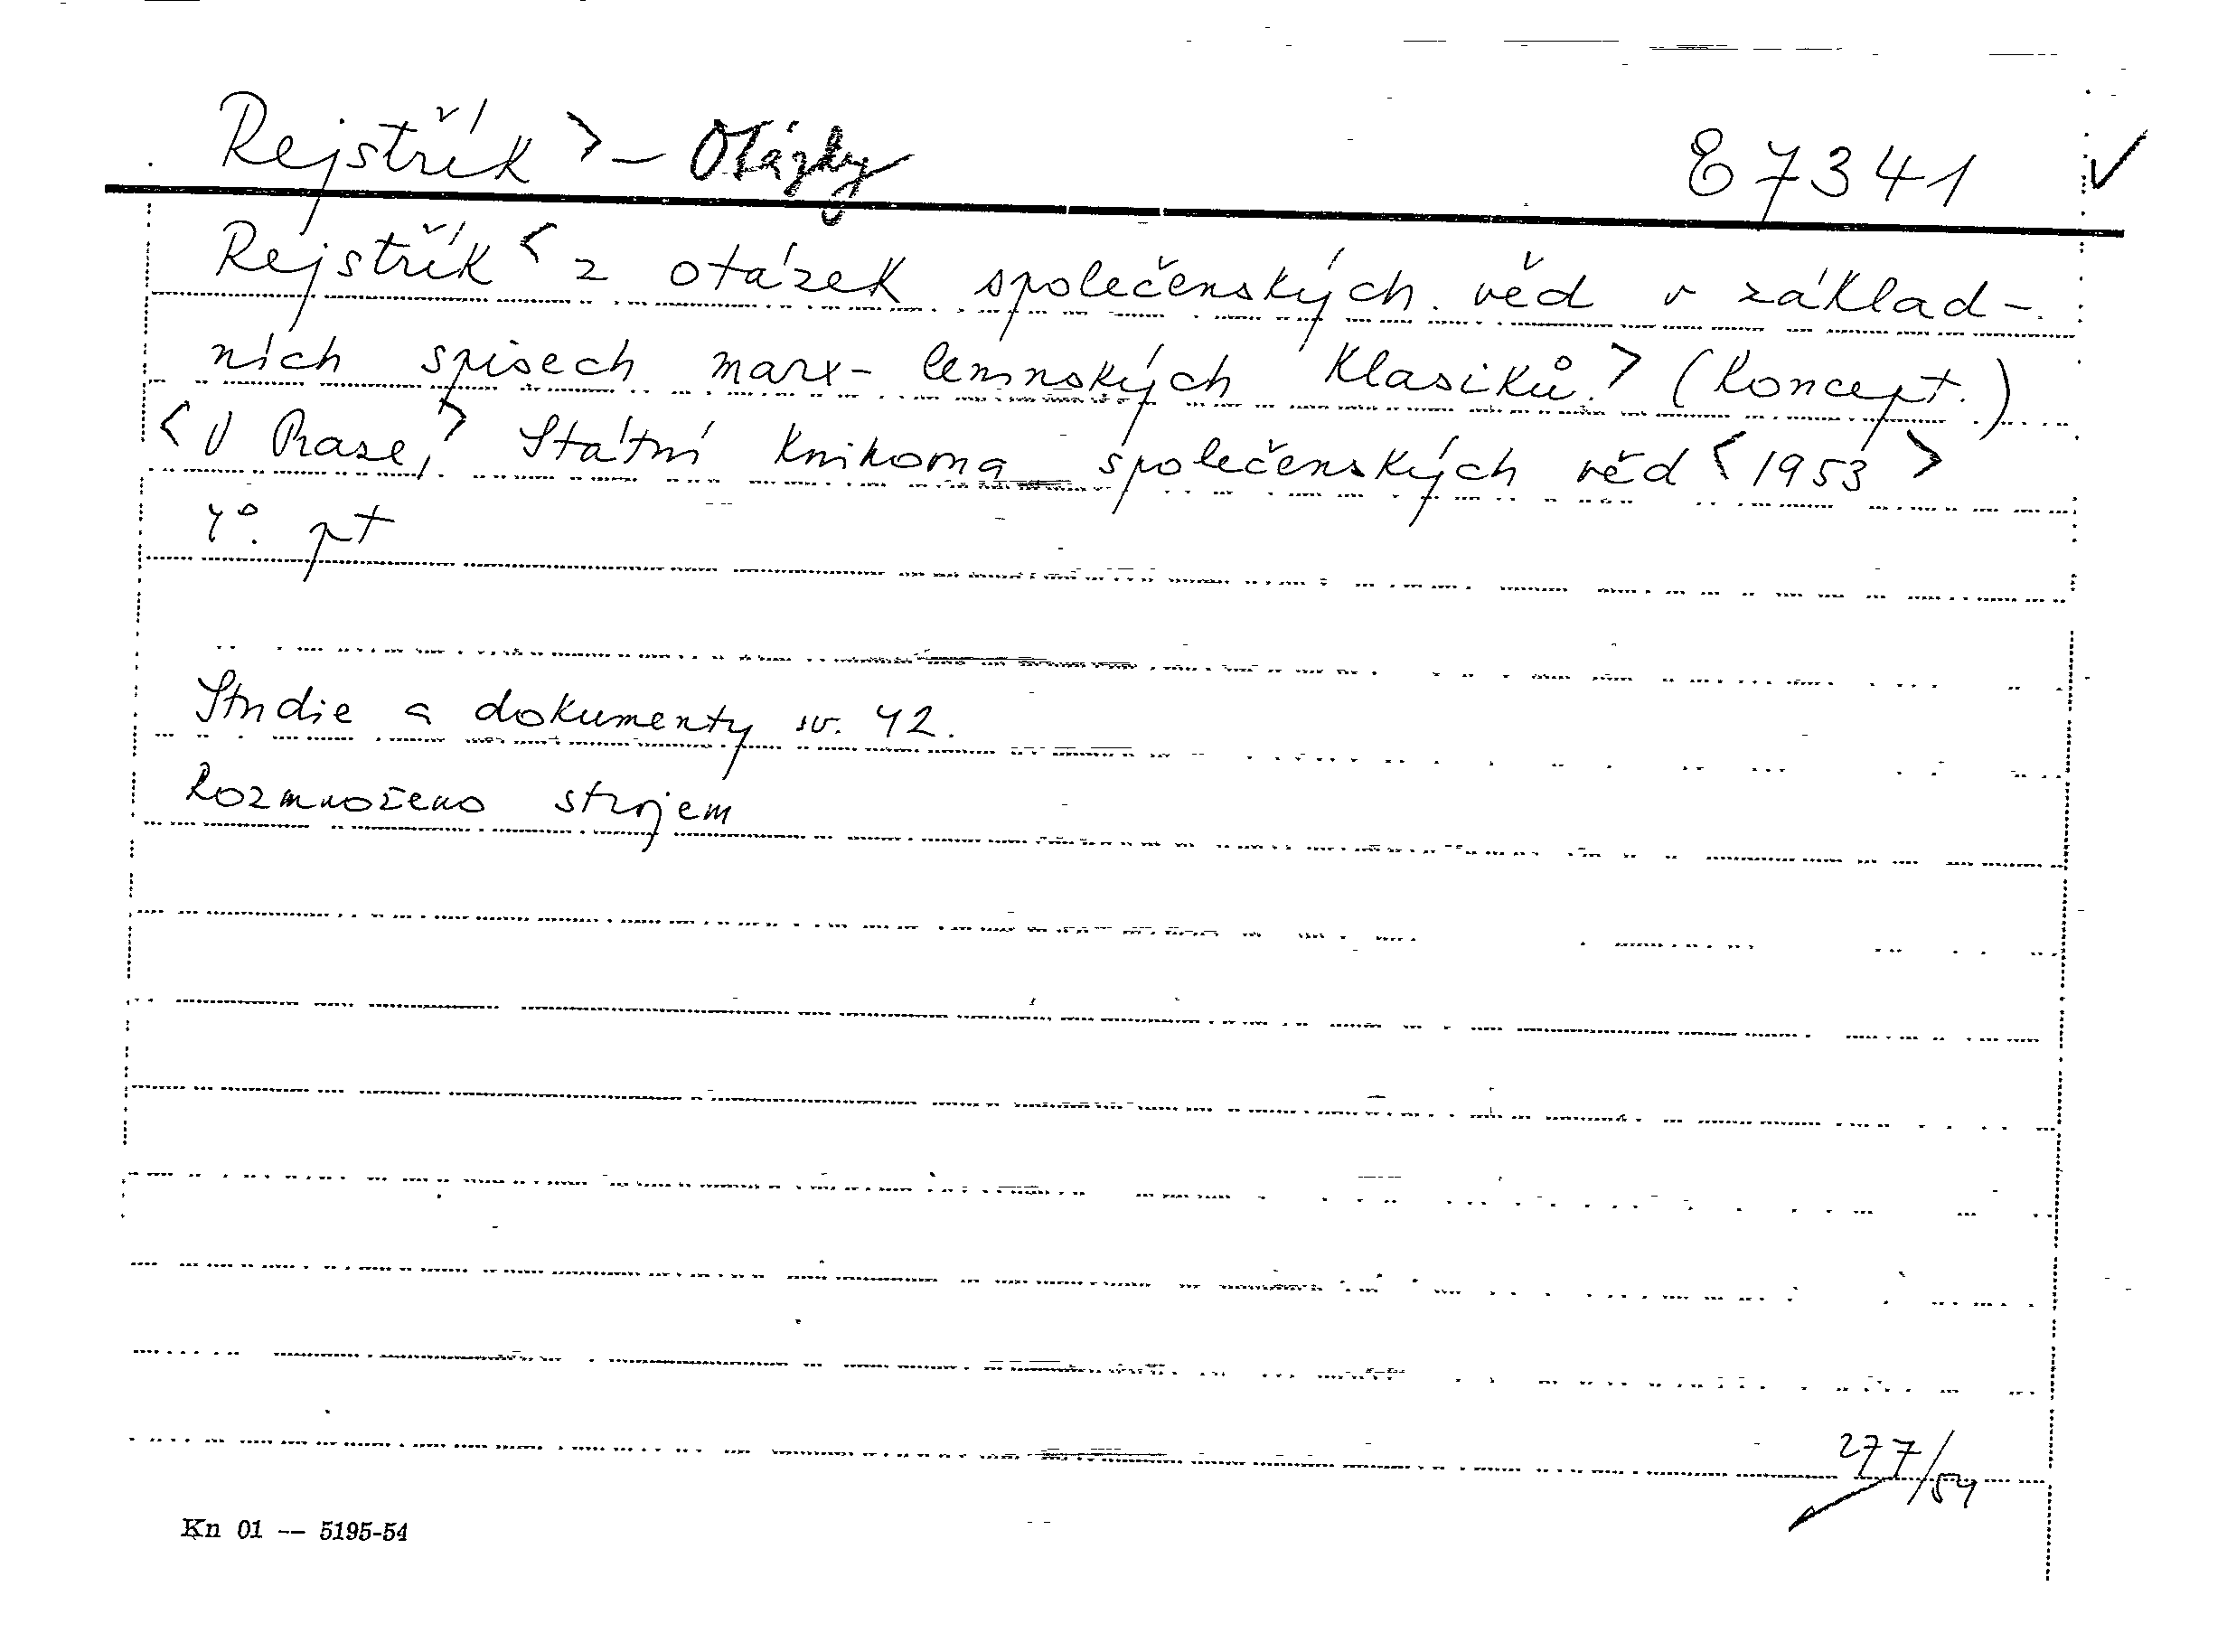 Rejstřík > – Otázky E 7341 ✓
Rejstřík < z otázek společenských věd v základ-
ních spisech marx-leninských klasiků. > (Koncept.)
< V Praze, > Státní knihovna společenských věd < 1953 >
4°. pt
Studie a dokumenty sv. 42.
Rozmnoženo strojem
277/54
Kn 01 — 5195-54